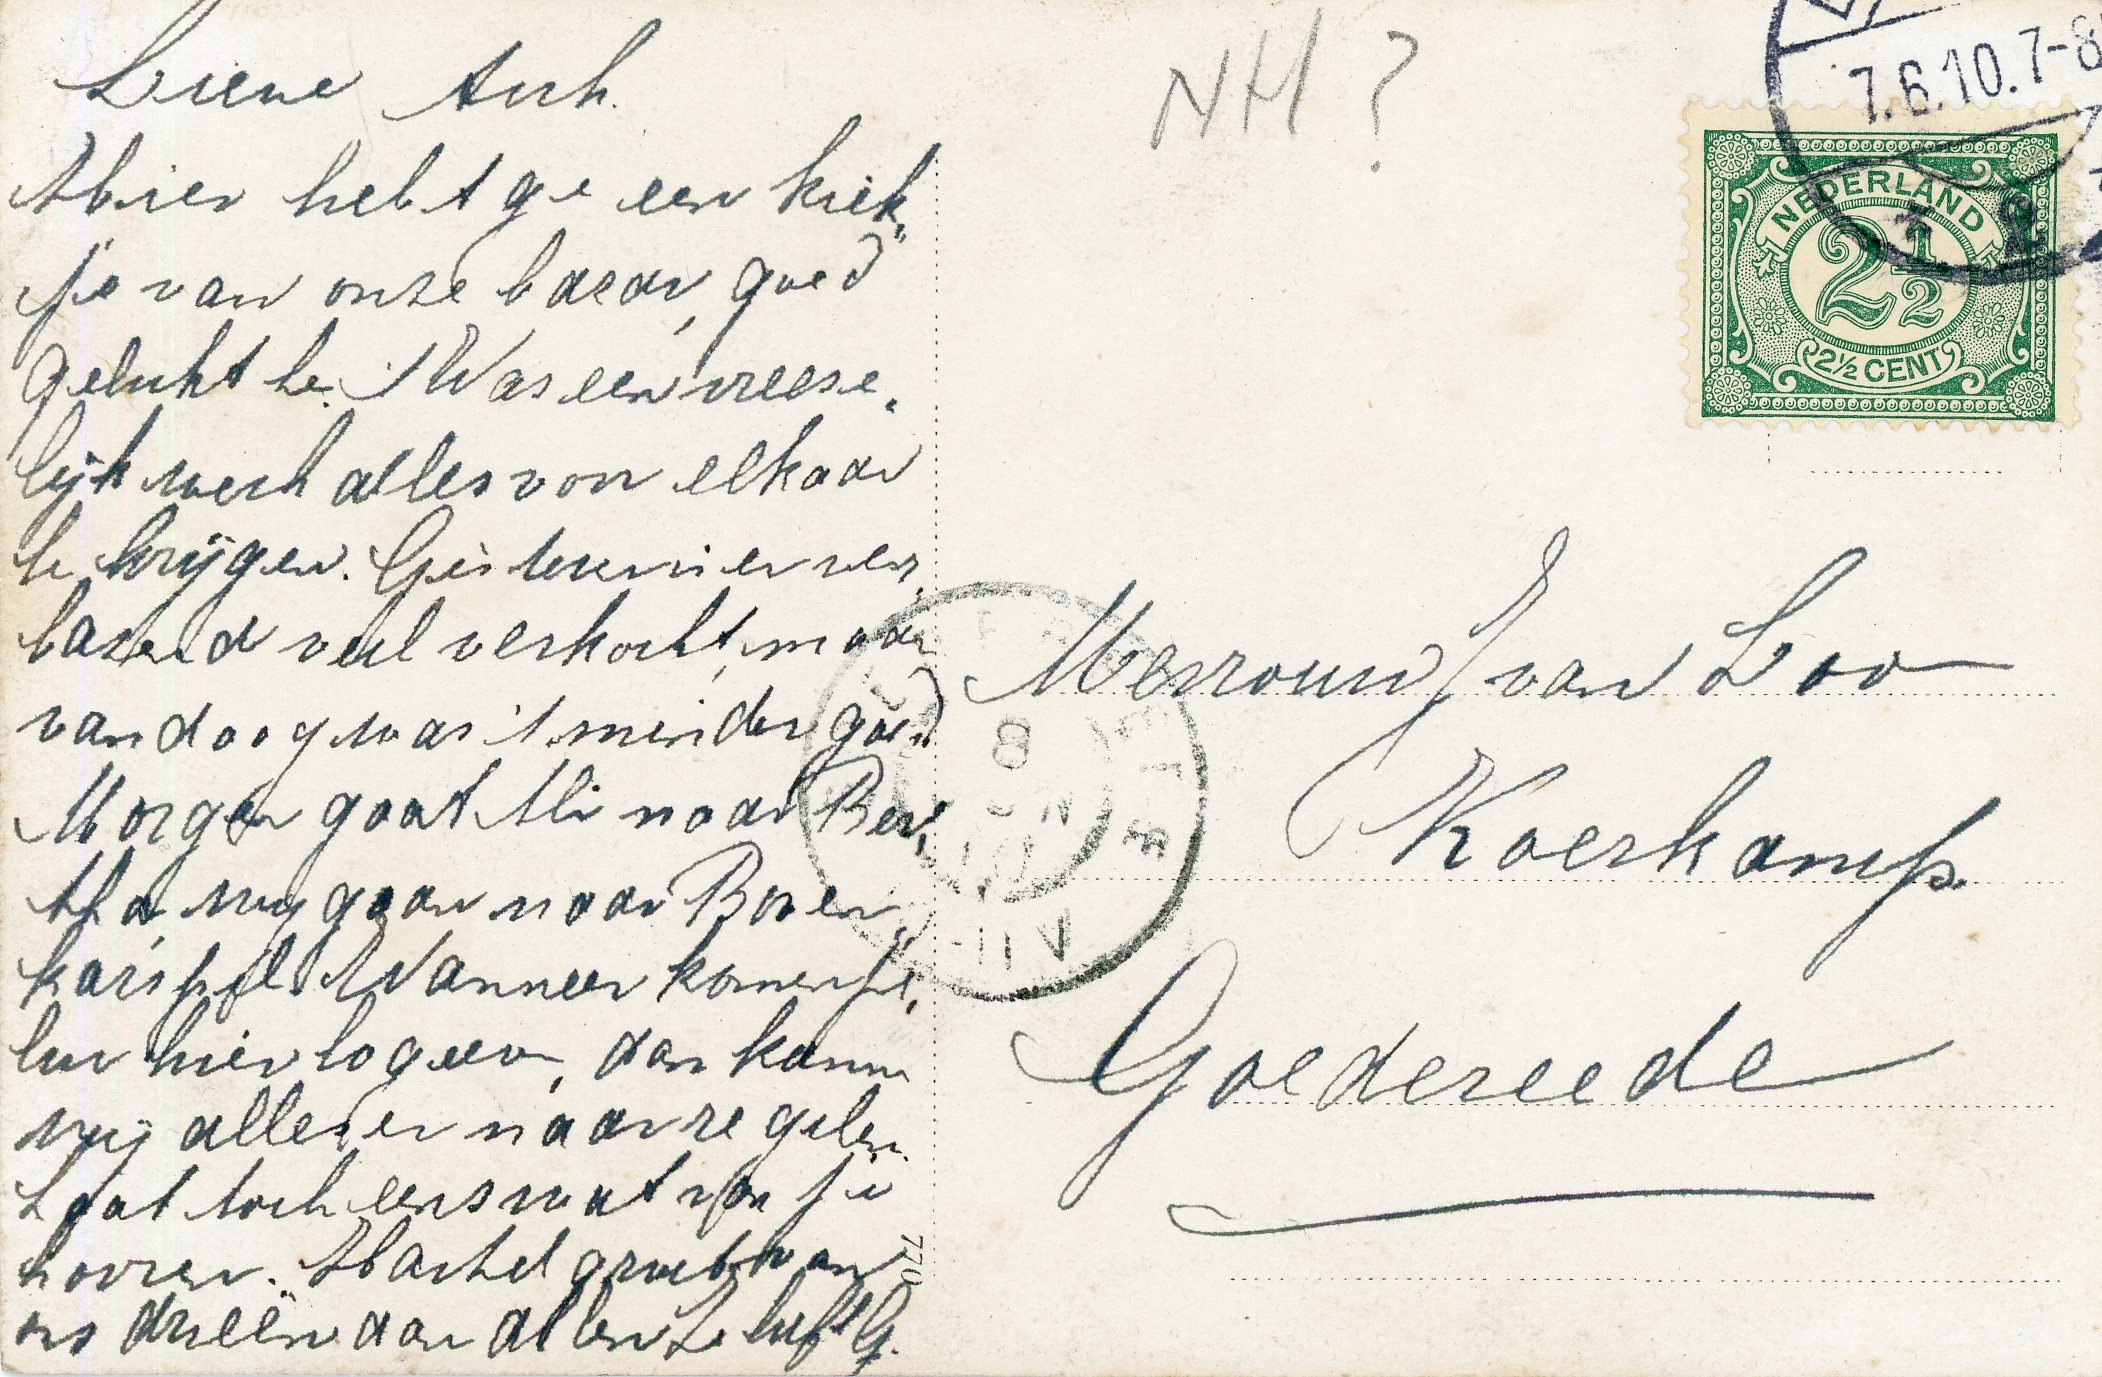 Lieve Anh.
Hier hebt ge een kiek„
je van onze bazar, goed
gelukt hé. 't Was een vreese„
lijk werk alles van elkaar
te krijgen. Gisteren is er ver„
bazend veel verkocht, maar
vandaag was 't minder goed
Morgen gaat Mi naar Ber„
tha, wij gaan naar Boven„
karspel. Wanneer komen jul„
lui hier logeeren, dan kunn
wij alles er naar regelen.
Laat toch eens wat van je
hooren. Hartel. groeten van
ons drieën aan allen. Je liefh. G.
NH?
7.6.10.7-8
NEDERLAND
2½
2½ CENT
8
10
VII
Mevrouw van Loo
Koerkamp.
Goedereede
770